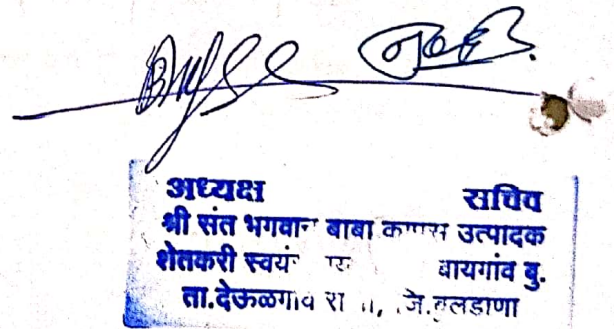 अध्यक्ष सचिव
श्री संत भगवान बाबा कापूस उत्पादक
शेतकरी स्वयं बायगांव बु.
ता.देऊळगाव रा जि.बुलडाणा